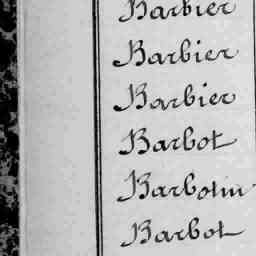 Barbier
Barbier
Barbier
Barbot
Barbotin
Barbot